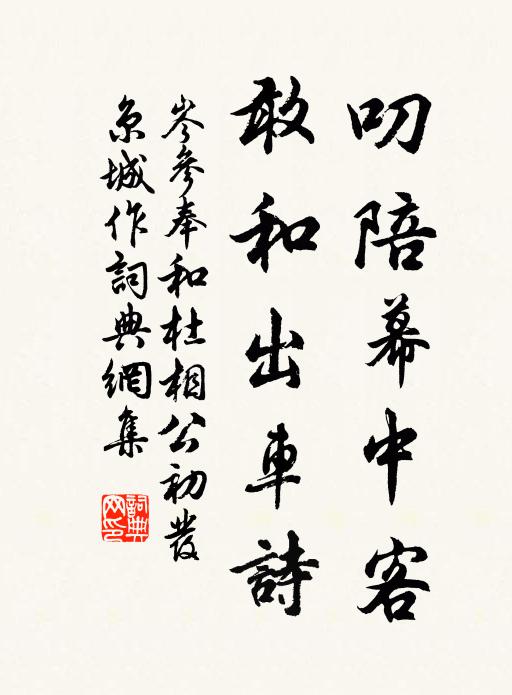 叨陪幕中客
敢和出車詩
岑參奉和杜相公初發
京城作詞典網集
詞典
网印